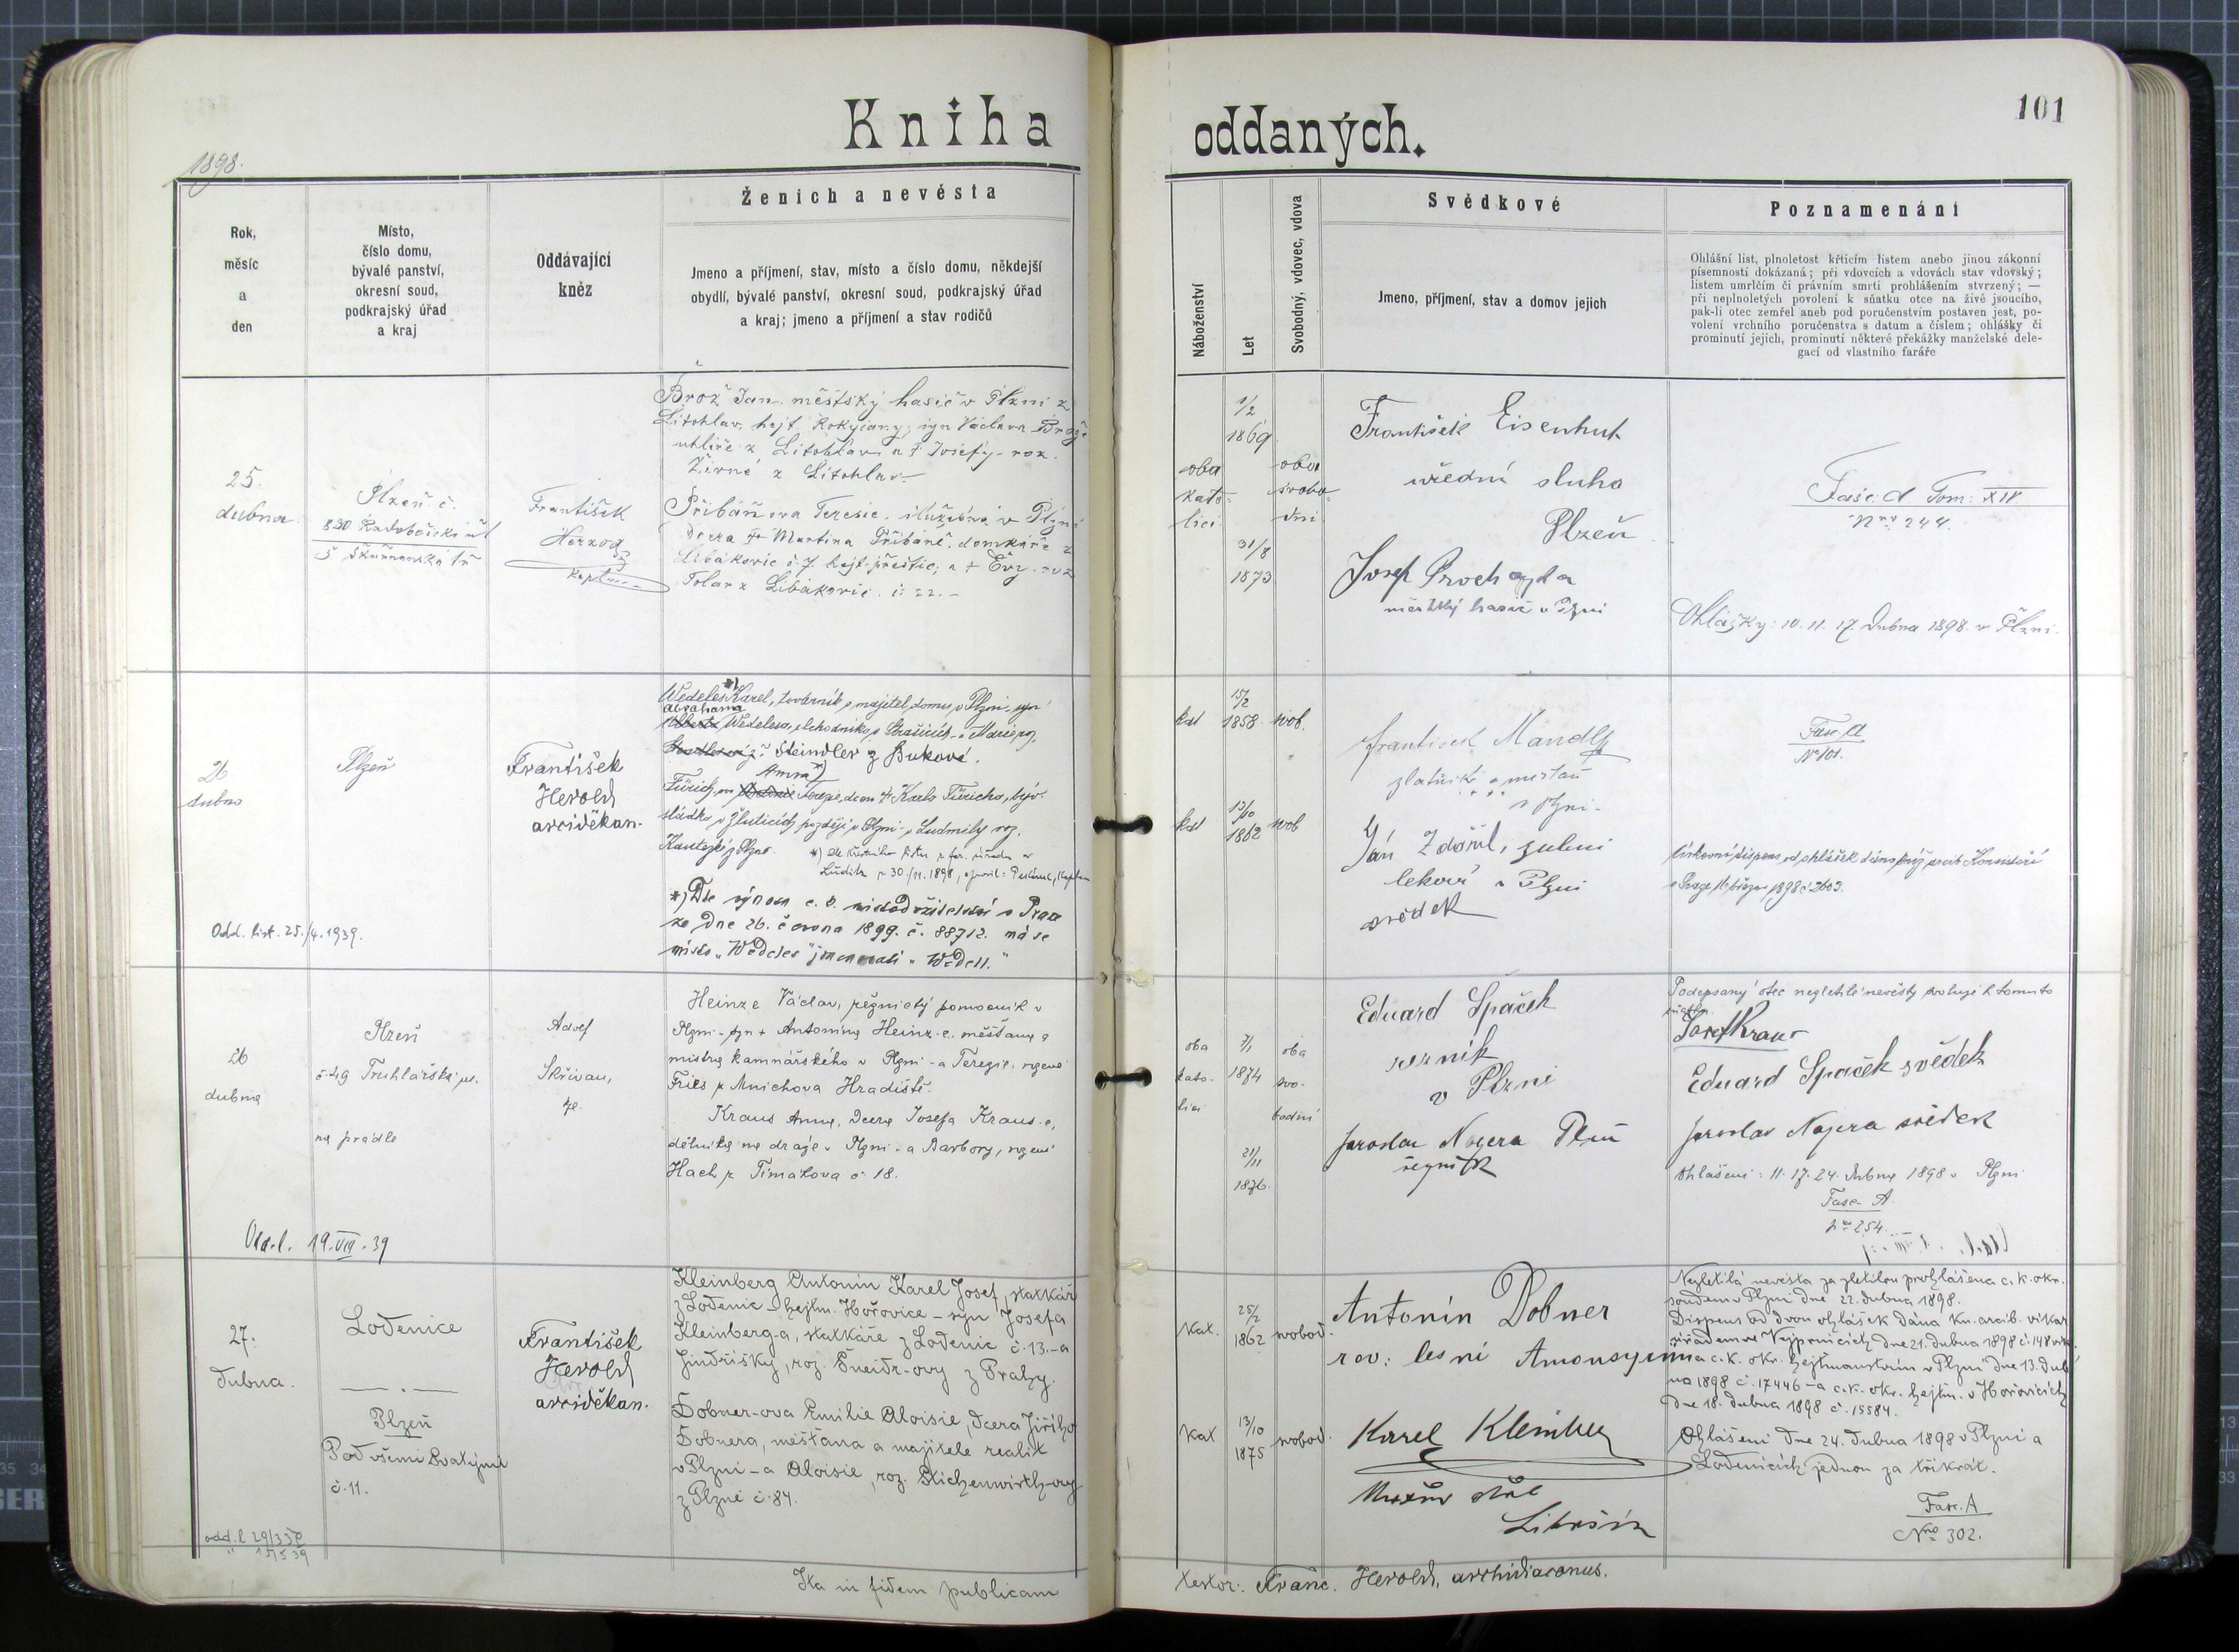 Kniha
oddaných.
101
1898.
Rok,
měsíc
a
den
Místo,
číslo domu,
bývalé panství,
okresní soud,
podkrajský úřad
a kraj
Oddávající
kněz
Ženich a nevěsta
Jmeno a příjmení, stav, místo a číslo domu, někdejší
obydlí, bývalé panství, okresní soud, podkrajský úřad
a kraj; jmeno a příjmení a stav rodičů
Náboženství
Let
Svobodný, vdovec, vdova
Svědkové
Jmeno, příjmení, stav a domov jejich
Poznamenání
Ohlášní list, plnoletost křticím listem anebo jinou zákonní
písemností dokázaná; při vdovcích a vdovách stav vdovský;
listem umrlčím či právním smrti prohlášením stvrzený; —
při neplnoletých povolení k sňatku otce na živě jsoucího,
pak-li otec zemřel aneb pod poručenstvím postaven jest, po-
volení vrchního poručenstva s datum a číslem; ohlášky či
prominutí jejich, prominutí některé překážky manželské dele-
gací od vlastního faráře
25.
dubna
Plzeň č.
František
Herzog
Brož Jan městský hasič v Plzni z
Litohlav, hejt. Rokycany, syn Václava Brože
uhlíře z Litohlav a † Josefy roz.
Živné z Litohlav.
Přibáňova Teresie, služebná v Plzni
dcera † Martina Přibáně, domkáře z
Libákovic č. 7. hejt. přeštic, a † Evy roz
Tolar z Libákovic č. 22.
oba
kato-
líci
1/2
1869
31/8
1873
oba
svobo-
dni
František Eisenhut
uřední sluha
Plzeň
Josef Prochazka
městský hasič v Plzni
Fasc. A Tom: XIV
Nro 244.
Ohlášky: 10. 11. 17. dubna 1898. v Plzni.
26
dubna
Plzeň
František
Herold
arciděkan.
Wedeles Karel, továrník a majitel domu v Plzni, syn
Abrahama
Wedelesa, obchodníka v Strašicích a Marie roz.
Steindler z Bukové.
Anna
Kautezký z Plzně.
Luditz 30./11. 1898,
*) Dle výnosu c. k. místodržitelství v Praze
ze dne 26. června 1899. č. 88712. má se
místo „Wedeles" jmenovati „Wedell."
Odd. list. 25./4. 1939.
kat
15/2
1858
svob.
kat
13/10
1862
svob
František Mandl
zlatník a měšťan
v Plzni.
Jan Zdařil, zubní
lekař v Plzni
svědek
Fasc. A
No 101.
26
dubna
Plzeň
č. 49 Truhlářská ul.
na prádle
Adolf
Skřivan,
Heinze Václav, řeznický pomocník v
Plzni - syn † Antonína Heinz-e, měšťana a
mistra kamnářského v Plzni - a Terezie, rozené
Fries z Mnichova Hradiště.
Kraus Anna, dcera Josefa Kraus-e,
dělníka na dráze v Plzni - a Barbory, rozené
Hach z Timákova č. 18.
Odd. l. 19. VIII. 39
oba
kato-
líci
7/1
1874
21/11
1876.
oba
svo-
bodní
Eduard Spaček
řezník
v Plzni
Jaroslav Nozera Plzeň
řezník
Podepsaný otec nezletilé nevěsty svoluje k tomuto
sňatku.
Josef Kraus
Eduard Spaček svědek
Jaroslav Nozera svědek
Ohlášeni: 11. 17. 24. dubna 1898 v Plzni
Fasc. A.
Nro 254.
27.
dubna.
Loděnice
Plzeň
Pod všemi Svatými
č. 11.
František
Herold
arciděkan.
Kleinberg Antonín Karel Josef, statkář
z Loděnic - hejtm. Hořovice - syn Josefa
Kleinberg-a, statkáře z Loděnic č. 13. - a
Jindřišky, roz. Šneidr-ovy z Prahy.
Dobner-ova Emilie Aloisie, dcera Jiřího
Dobnera, měšťana a majitele realit
v Plzni - a Aloisie, roz. Stichenwirth-ovy
z Plzně č. 84.
Kat.
25/2
1862
svobod.
Kat
13/10
1875
svobod.
Antonín Dobner
Karel Kleinberg
Nezletilá nevěsta za zletilou prohlášena c. k. okr.
soudem v Plzni dne 22. dubna 1898.
Dispens od dvou ohlášek dána kn. arcib. vikar.
úřadem ve Vejprnicích dne 21. dubna 1898 č. 148 vik.
a c. k. okr. hejtmanstvím v Plzni dne 13. dub-
na 1898 č. 17446 - a c. k. okr. hejtm. v Hořovicích
dne 18. dubna 1898 č. 15584.
Ohlášeni dne 24. dubna 1898 v Plzni a
Loděnicích jednou za třikrát.
Fasc. A
Nro 302.
Ita in fidem publicam
testor: Franc. Herold, archidiaconus.